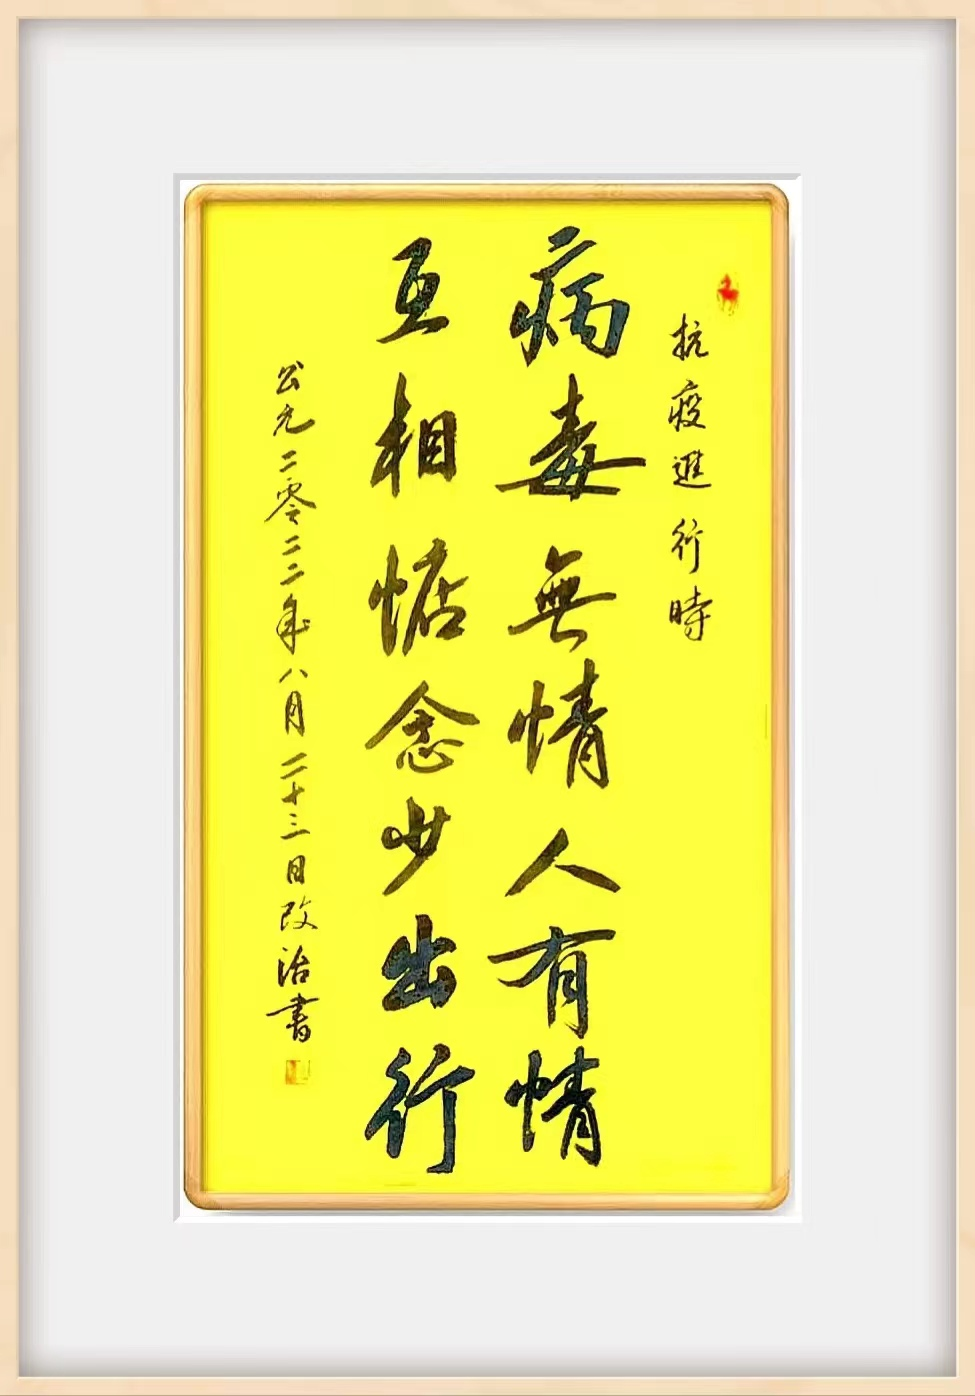 抗疫進行時
病毒無情人有情
互相惦念少出行
公元二零二二年八月二十三日改治書